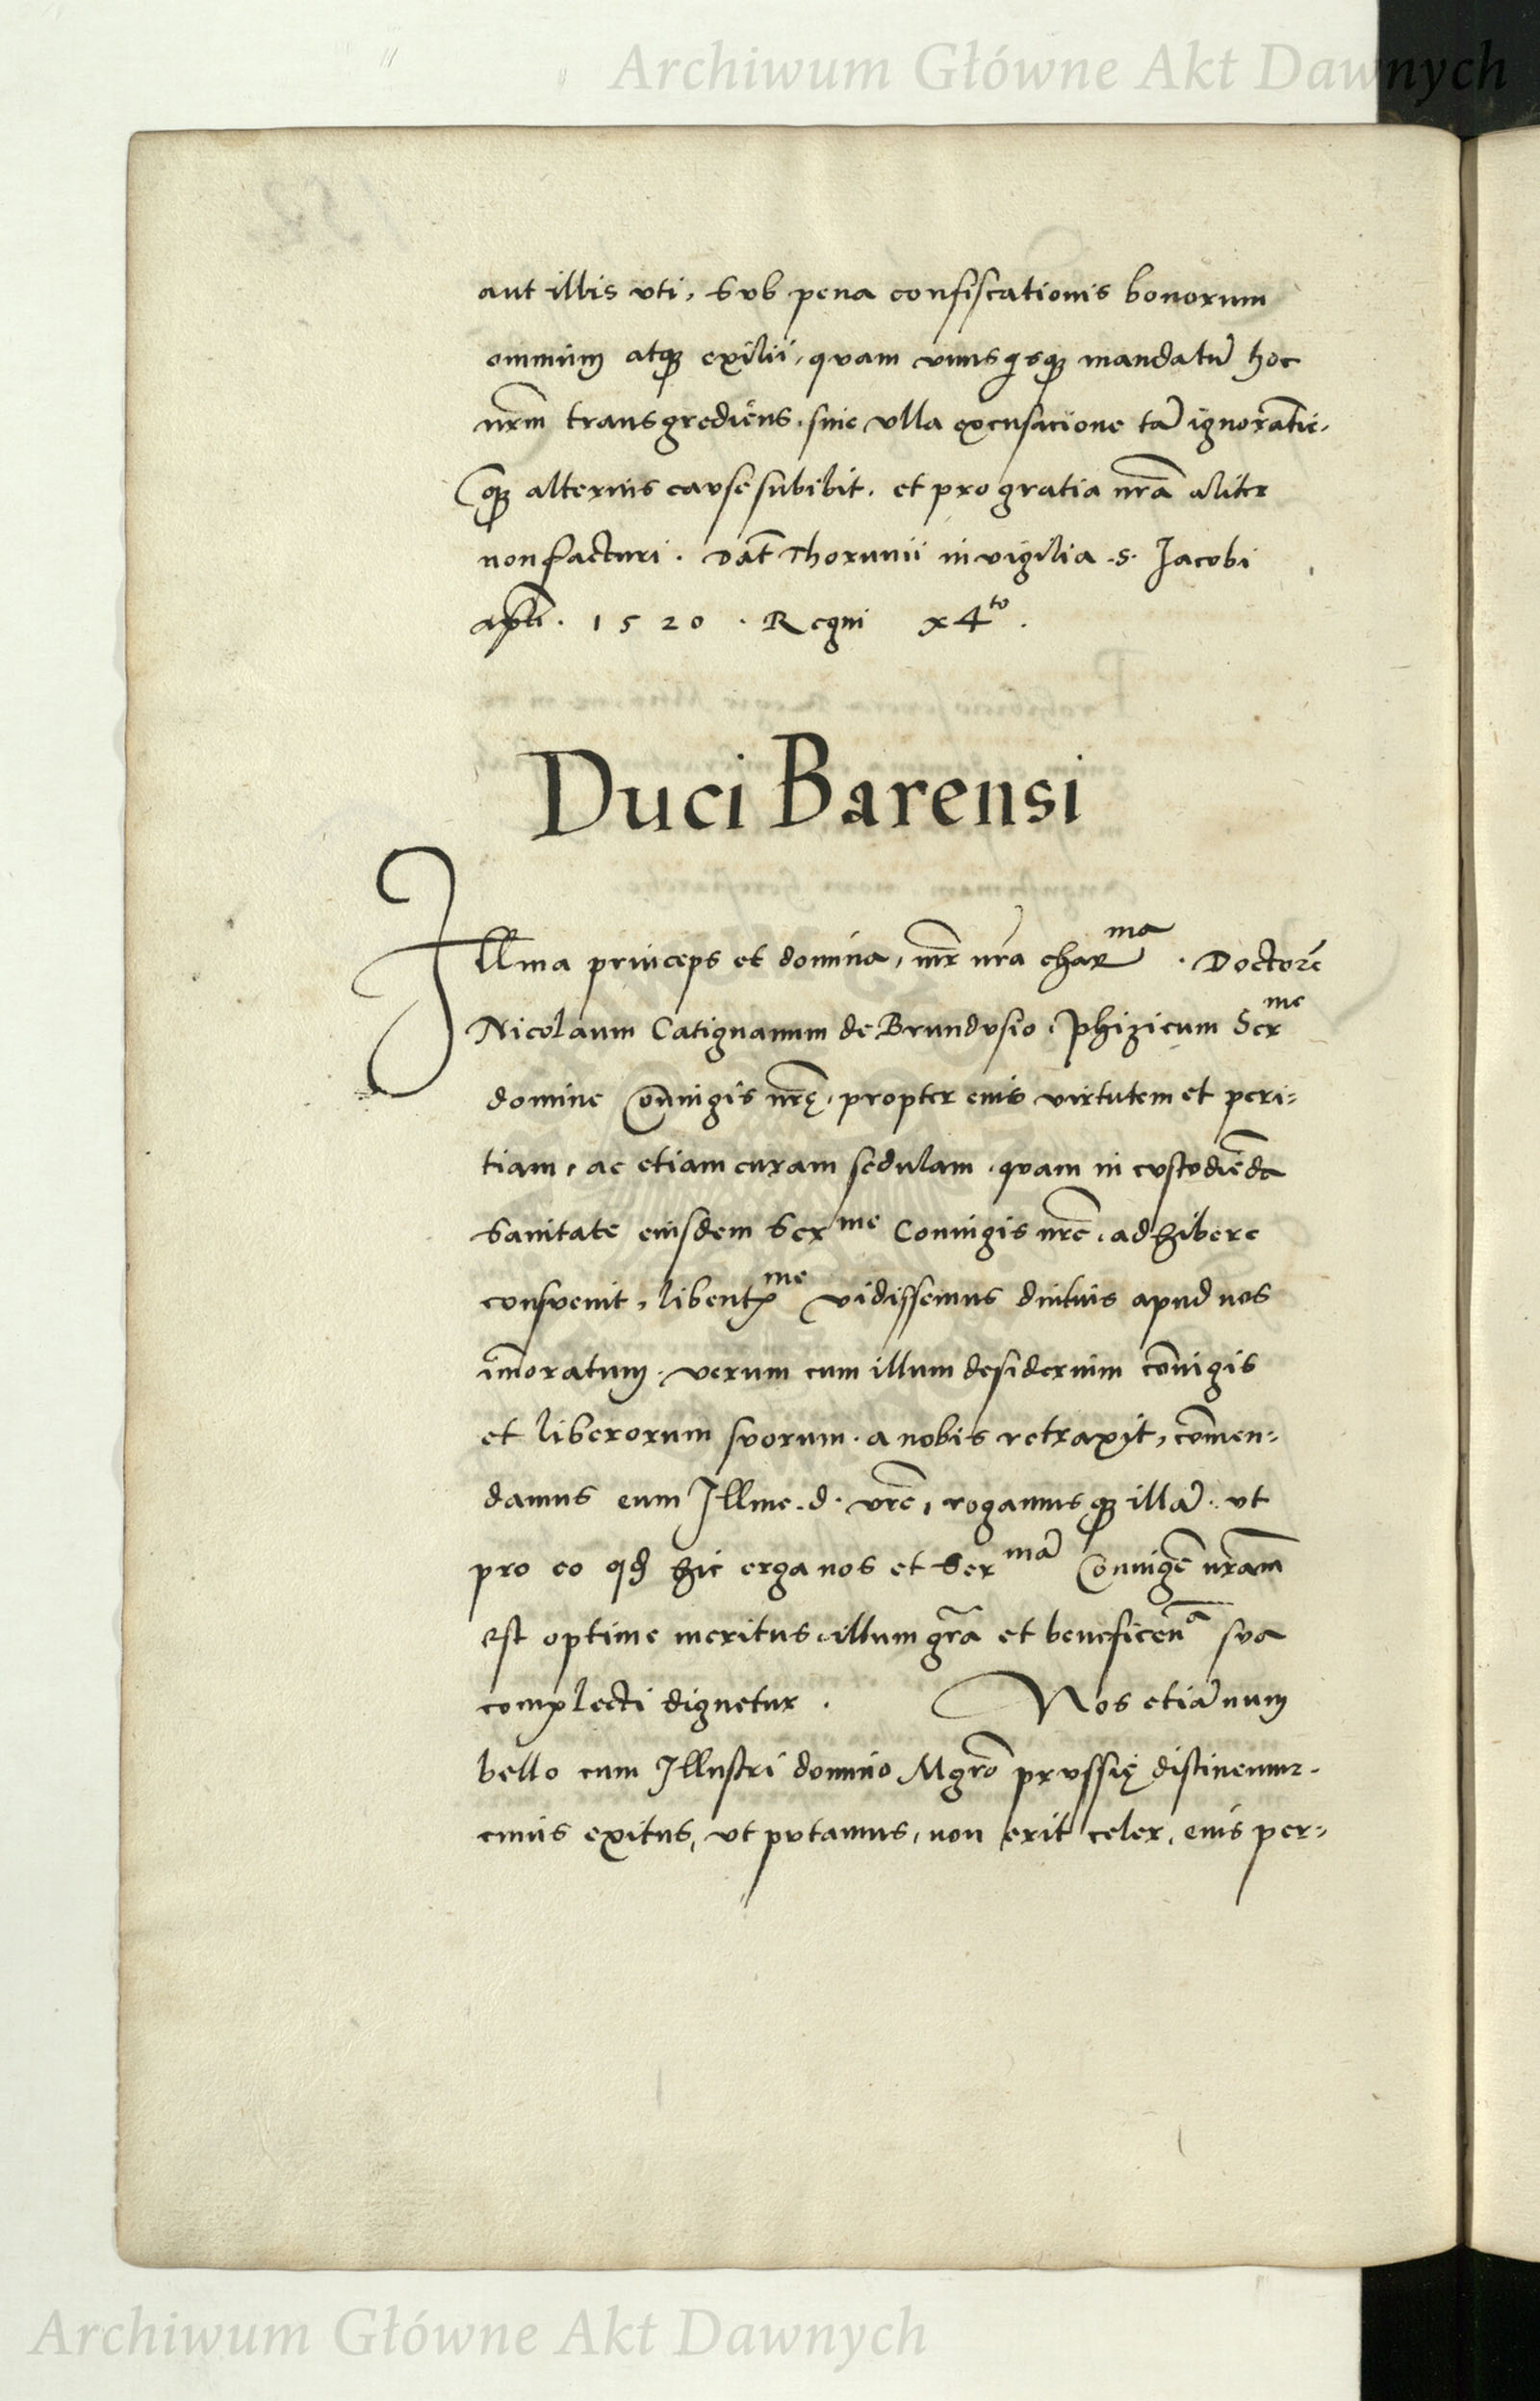 Archiwum Główne Akt Dawnych
aut illis vti, sub pena confiscationis bonorum
omnium atqꝫ exilii, quam vnusqsqꝫ mandatū hoc
nr̄m transgrediens, sine vlla excusacione tā ignorātie,
q̄ꝫ alterius cause subibit. et pro gratia nr̄a aliter
non facturi. Dat̄ Thorunii in vigilia .s. Jacobi
apl̄i. 1520. Regni x4to.
Duci Barensi
Illma princeps et domina, mr̄ nr̄a charma. Doctorē
Nicolaum Catignanum de Brundusio, phizicum Serme
domine Cōniugis nr̄ę, propter eius virtutem et peri-
tiam, ac etiam curam sedulam, quam in custodiēda
sanitate eiusdem Serme Coniugis nr̄e, adhibere
consuevit, libentme vidissemus diutius apud nos
im̄oratum. verum cum illum desiderium cōiugis
et liberorum suorum. a nobis retraxit, cōmen-
damus eum Illme. d. vr̄e, rogamusqꝫ illā. vt
pro eo qd hic erga nos et Sermā Coniugē nr̄am
est optime meritus, illum gr̄a et beneficen̄a sua
complecti dignetur. Nos etiānum
bello cum Illustri domino Mgrō prussię distinemur.
cuius exitus, vt putamus, non erit celer, eius per-
Archiwum Główne Akt Dawnych